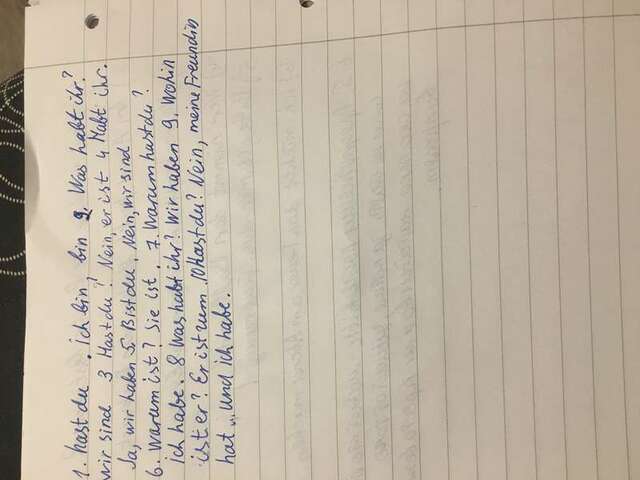 1. hast du. ich bin bin 2. Was habt ihr?
wir sind 3 Hast du? Nein, er ist 4 Habt ihr.
Ja, wir haben 5. Bist du, Nein, wir sind
6. Warum ist? Sie ist. 7. Warum hast du?
ich habe. 8 Was habt ihr? Wir haben 9. Wohin
ist er? Er ist zum. 10 hast du? Nein, meine Freundin
hat „ und ich habe.